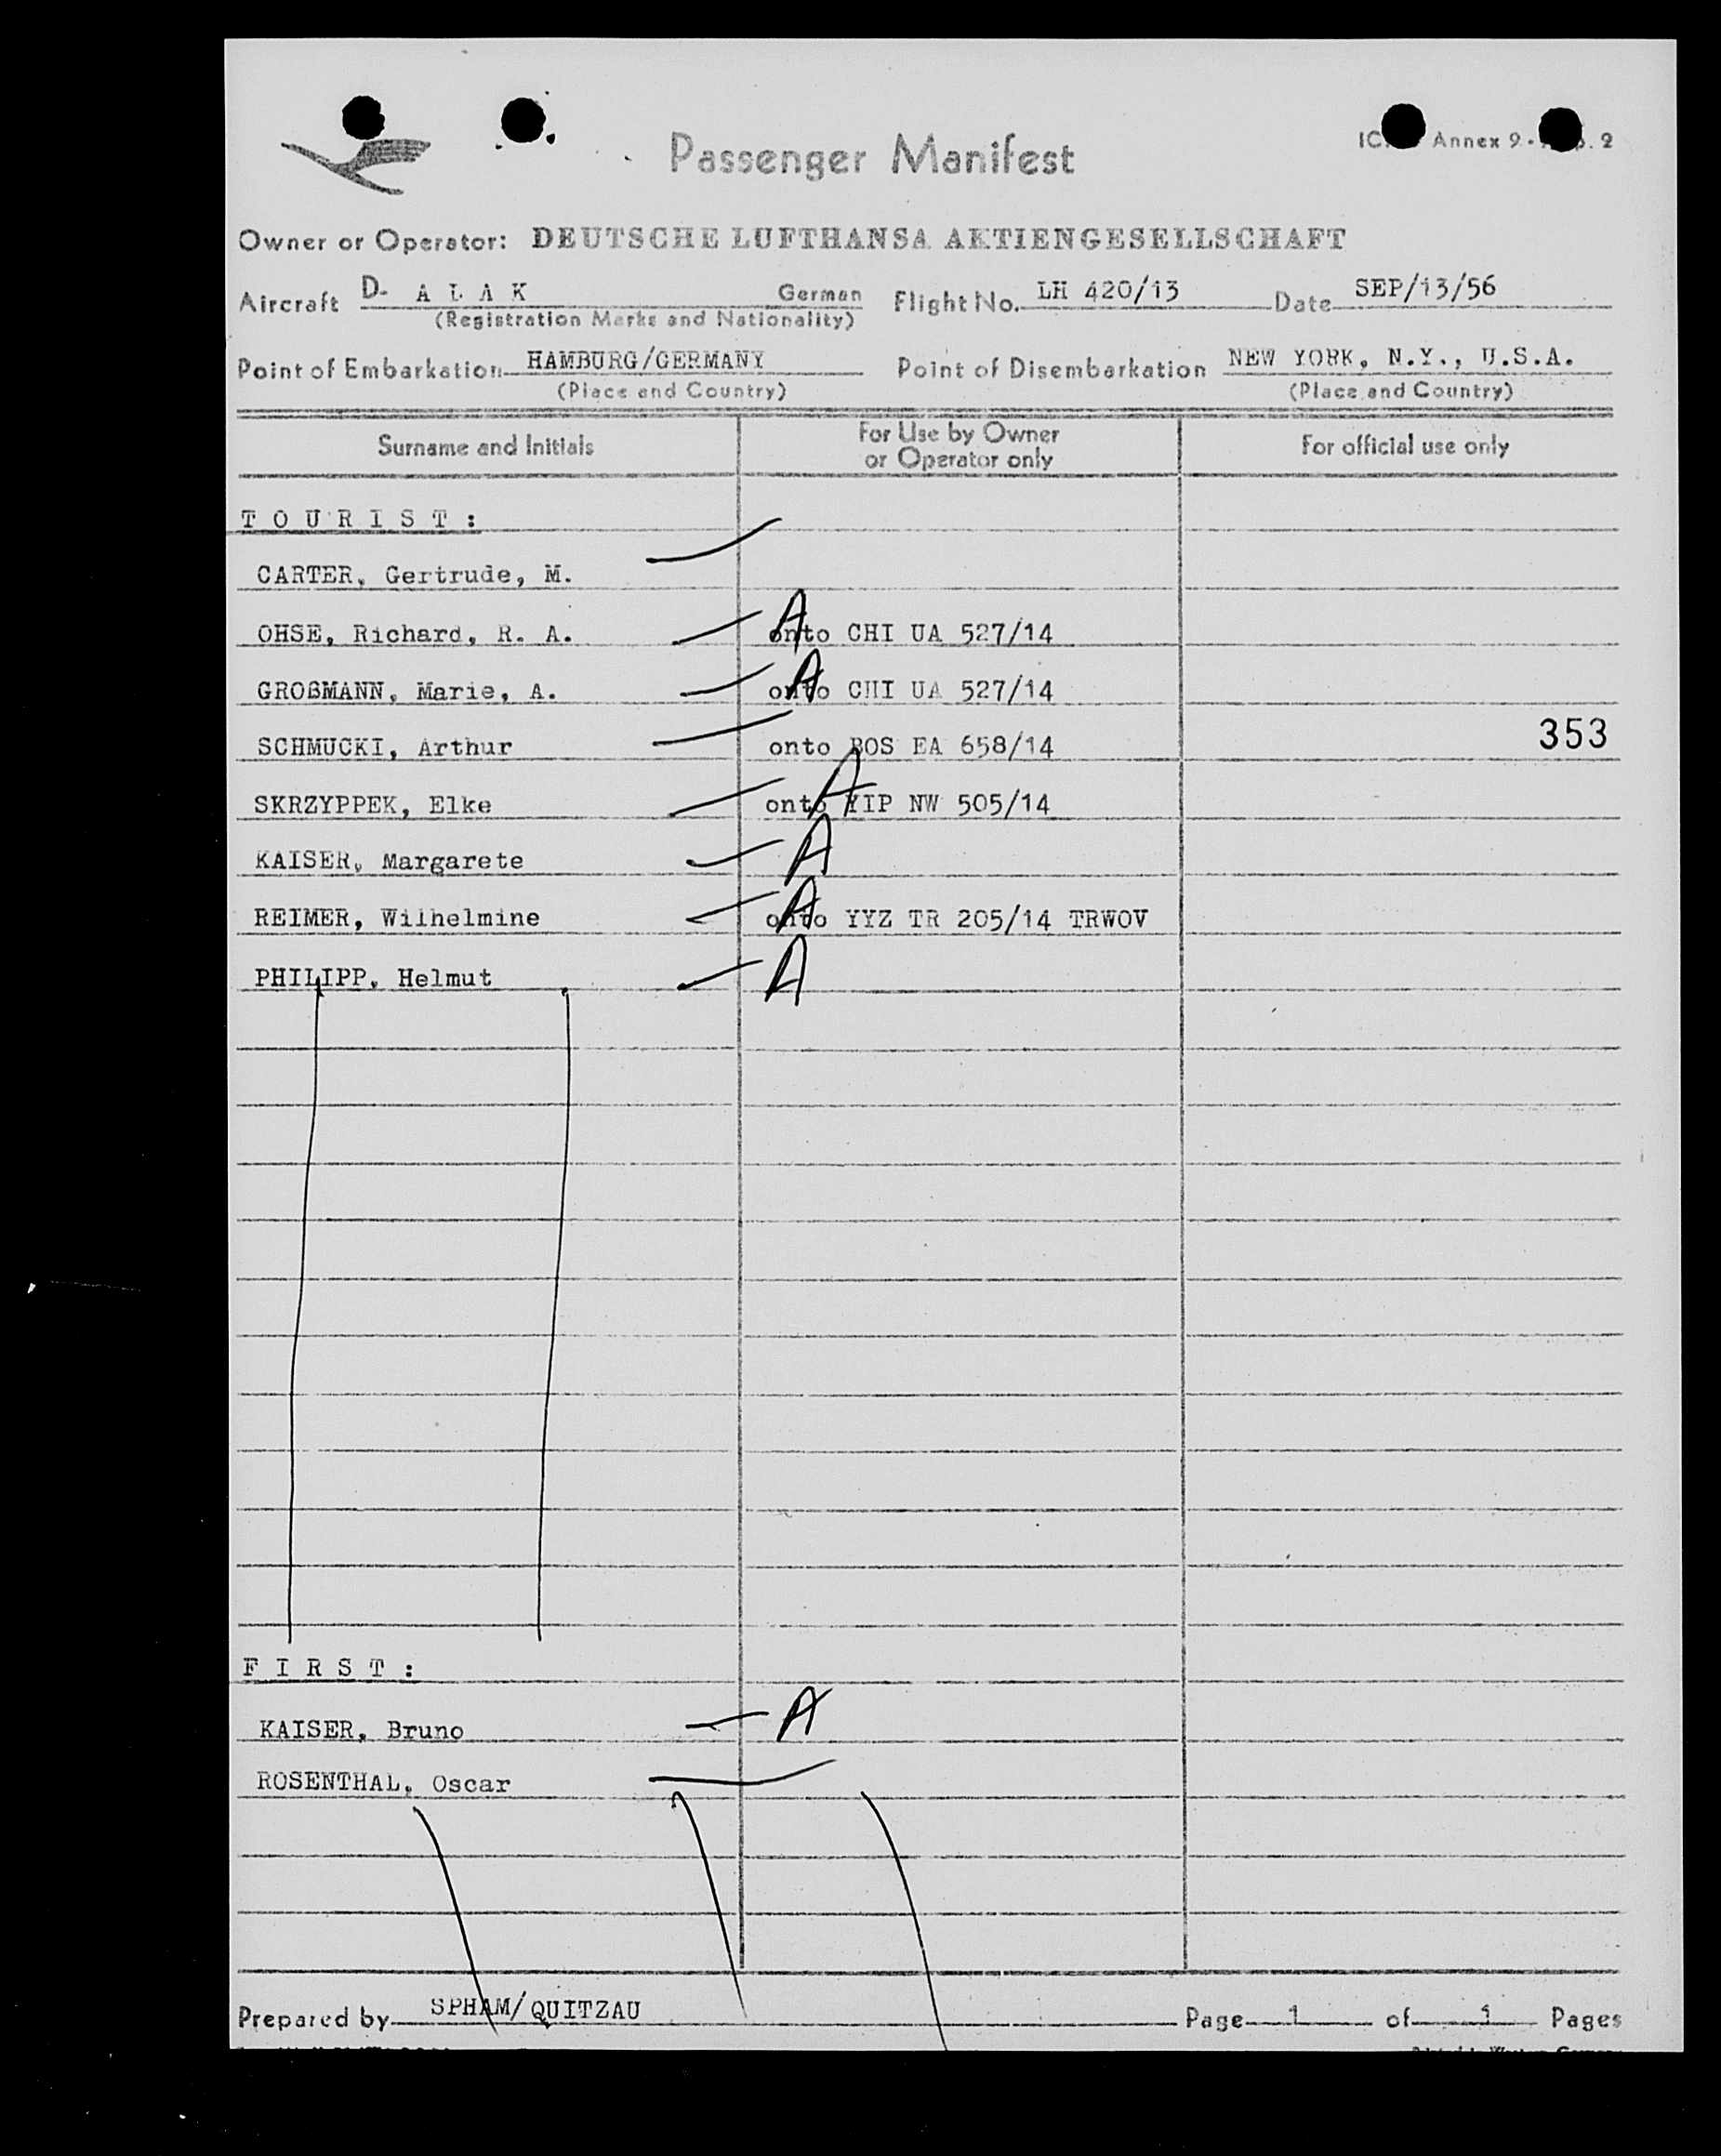 Passenger Manifest
Annex 9 2
Owner or Operator: DEUTSCHE LUFTHANSA AKTIENGESELLSCHAFT
Aircraft D- A L A K German Flight No. LH 420/13 Date SEP/13/56
(Registration Marks and Nationality)
Point of Embarkation HAMBURG/GERMANY Point of Disembarkation NEW YORK, N.Y., U.S.A.
(Place and Country) (Place and Country)
Surname and Initials For Use by Owner or Operator only For official use only
T O U R I S T :
CARTER, Gertrude, M.
OHSE, Richard, R. A. A onto CHI UA 527/14
GROßMANN, Marie, A. A onto CHI UA 527/14
SCHMUCKI, Arthur onto BOS EA 658/14 353
SKRZYPPEK, Elke A onto YIP NW 505/14
KAISER, Margarete A
REIMER, Wilhelmine A onto YYZ TR 205/14 TRWOV
PHILIPP, Helmut A
F I R S T :
KAISER, Bruno A
ROSENTHAL, Oscar
Prepared by SPHAM/QUITZAU Page 1 of 1 Pages